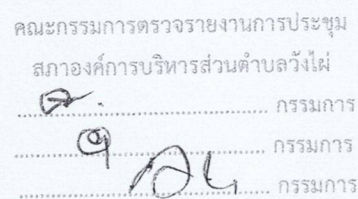 คณะกรรมการตรวจรายงานการประชุม
สภาองค์การบริหารส่วนตำบลวังไผ่
กรรมการ
กรรมการ
กรรมการ